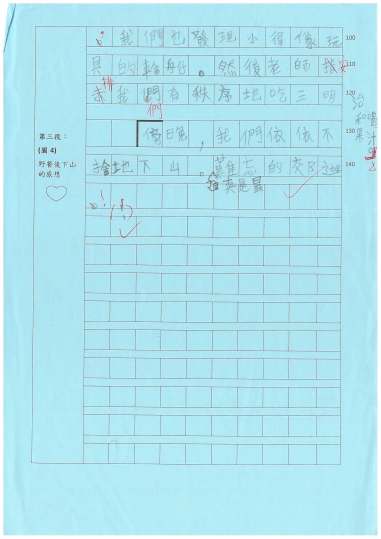 我們也發現小得像玩 100
具的輪船。然後老師 110
我們有秩序地吃三明 120
們
和喝
果汁
第三段：
(圖4)
野餐後下山
的感想
傍晚，我們依依不 130
捨地下山。難忘的 140
真是最